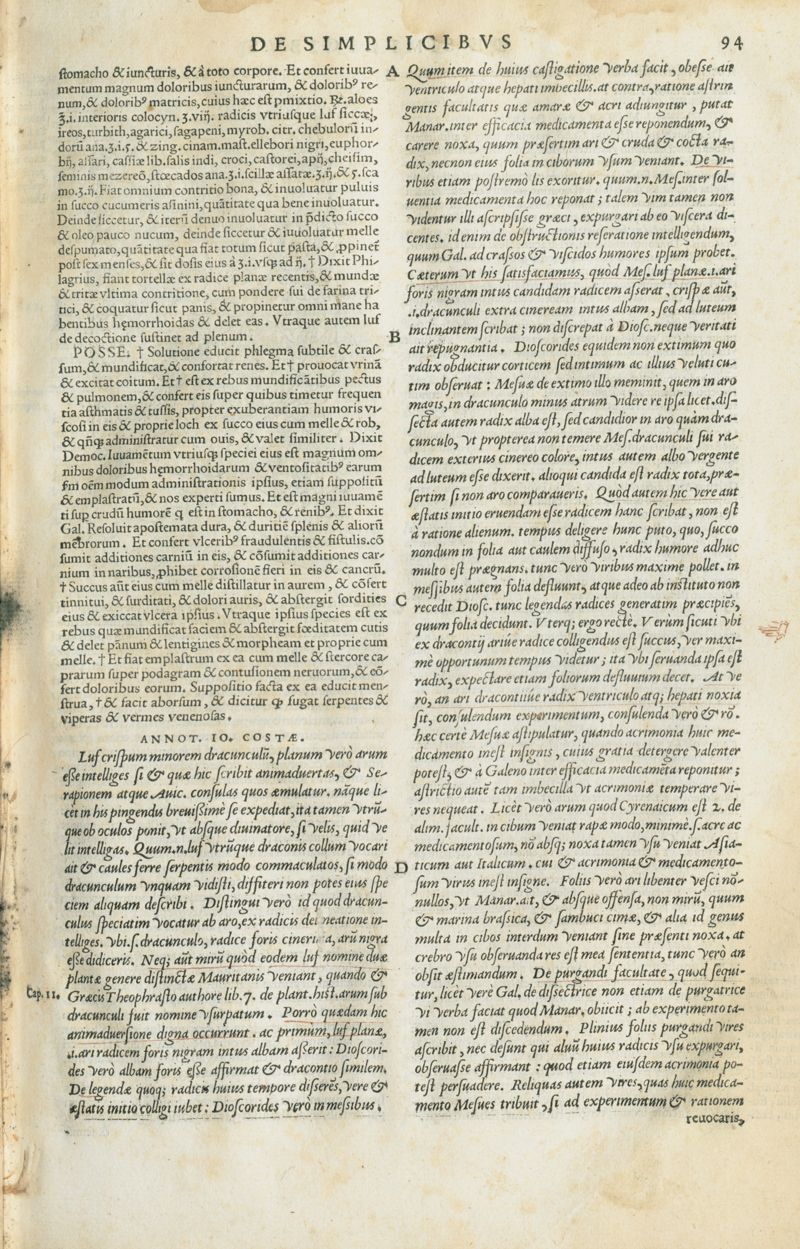 DE SIMPLICIBVS 94
stomacho & iuncturis, & à toto corpore. Et confert iuua-
mentum magnum doloribus iuncturarum, & doloribꝰ re-
num, & doloribꝰ matricis, cuius hæc est pmixtio. ℞. aloes
ʒ.i. interioris colocyn. ʒ.viij. radicis vtriusque luf siccæ,
ireos, turbith, agarici, sagapeni, myrob. citr. chebulorū in-
dorū ana.ʒ.i.ſ. & zing. cinam. mast. ellebori nigri, euphor-
bij, assari, cassiæ lib. salis indi, croci, castorei, apij, cheisim,
seminis mezereō, stœcados ana.ʒ.i. scillæ assatæ.ʒ.ij. & ſ. sca
mo.ʒ.ij. Fiat omnium contritio bona, & inuoluatur puluis
in succo cucumeris asinini, quātitate qua bene inuoluatur.
Deinde siccetur, & iterū denuo inuoluatur in p̄dicto succo
& oleo pauco nucum, deinde siccetur & iuuoluatur melle
despumato, quātitate qua fiat totum sicut pasta, & ꝓpinet̄
post sex menses, & sit dosis eius à ʒ.i. vsq; ad ij. † Dixit Phi-
lagrius, fiant tortellæ ex radice planæ recentis, & mundæ
& tritæ vltima contritione, cum pondere sui de farina tri-
tici, & coquatur sicut panis, & propinetur omni mane ha
bentibus hęmorrhoidas & delet eas. Vtraque autem luf
de decoctione sustinet ad plenum.
POSSE. † Solutione educit phlegma subtile & cras-
sum, & mundificat, & confortat renes. Et † prouocat vrinā
& excitat coitum. Et † est ex rebus mundificātibus pectus
& pulmonem, & confert eis super quibus timetur frequen
tia asthmatis & tussis, propter exuberantiam humoris vi-
scosi in eis & proprie loch ex succo eius cum melle & rob,
& qñq; administratur cum ouis, & valet similiter. Dixit
Democ. Iuuamētum vtriusq; speciei eius est magnum om-
nibus doloribus hęmorrhoidarum & ventositatibꝰ earum
fm oēm modum administrationis ipsius, etiam suppositū
& emplastratū, & nos experti sumus. Et est magni iuuamē
ti sup crudū humorē q est in stomacho, & renibꝰ. Et dixit
Gal. Resoluit apostemata dura, & duritiē splenis & aliorū
mēbrorum. Et confert vlceribꝰ fraudulentis & fistulis. cō
sumit additiones carniū in eis, & cōsumit additiones car-
nium in naribus, ꝓhibet corrosionē fieri in eis & cancrū.
† Succus aūt eius cum melle distillatur in aurem, & cōfert
tinnitui, & surditati, & dolori auris, & abstergit sordities
eius & exiccat vlcera ipsius. Vtraque ipsius species est ex
rebus quæ mundificat faciem & abstergit fœditatem cutis
& delet pānum & lentigines & morpheam et proprie cum
melle. † Et fiat emplastrum ex ea cum melle & stercore ca-
prarum super podagram & contusionem neruorum, & cō-
fert doloribus eorum. Suppositio facta ex ea educit men-
strua, † & facit aborsum, & dicitur ꝙ fugat serpentes &
viperas & vermes venenosas.
ANNOT. IO. COSTÆ.
Luf crispum minorem dracunculū, planum verò arum
esse intelliges si & quæ hic scribit animaduertas, & Se-
rapionem atque Auic. consulas quos æmulatur. náque li-
cèt in his pingendus breuissimè se expediat, ita tamen vtrū-
que ob oculos ponit, vt absque diuinatore, si velis, quid ve
lit intelligas. Quum.n. luf vtrūque draconis collum vocari
ait & caules ferre serpentis modo commaculatos, si modo
dracunculum vnquam vidisti, diffiteri non potes eius spe
ciem aliquam describi. Distingui verò id quod dracun-
culus speciatim vocatur ab aro, ex radicis delineatione in-
telliges. vbi.s. dracunculo, radice foris cinerea, arū nigra
esse didiceris. Neq; aūt mirū quòd eodem luf nomine duæ
plantæ genere distinctæ Mauritanis veniant, quando &
Cap. 11. Græcis Theophrasto authore lib.7. de plant. hist. arum sub
dracunculi fuit nomine vsurpatum. Porrò quædam hic
animaduersione digna occurrunt. ac primùm, luf planæ,
.i. ari radicem foris nigram intus albam asserit: Dioscori-
des verò albam foris esse affirmat & dracontio similem.
De legendæ quoq; radicis huius tempore disseres, vere &
æstatis initio colligi iubet: Dioscorides verò in messibus.
A Quum item de huius castigatione verba facit, obesse ait
ventriculo atque hepati imbecillis. at contra, ratione astrin
gentis facultatis quæ amaræ & acri adiungitur, putat
Manar. inter efficacia medicamenta esse reponendum, &
carere noxa, quum præsertim ari & cruda & cocta ra-
dix, necnon eius folia in ciborum vsum veniant. De vi-
ribus etiam postremò lis exoritur. quum.n. Mes. inter sol-
uentia medicamenta hoc reponat; talem vim tamen non
videntur illi ascripsisse græci, expurgari ab eo viscera di-
centes. id enim de obstructionis reseratione intelligendum,
quum Gal. ad crassos & viscidos humores ipsum probet.
Cæterum vt his satisfaciamus, quòd Mes. luf planæ .i. ari
foris nigram intus candidam radicem asserat, crispæ aūt,
.i. dracunculi extra cineream intus albam, sed ad luteum
inclinantem scribat; non discrepat à Diosc. neque veritati
B ait repugnantia. Dioscorides equidem non extimum quo
radix obducitur corticem sed intimum ac illius veluti cu-
tim obseruat: Mesuæ de extimo illo meminit, quem in aro
magis, in dracunculo minus atrum videre re ipsa licet. dis-
secta autem radix alba est, sed candidior in aro quàm dra-
cunculo, vt propterea non temere Mes. dracunculi sui ra-
dicem exterius cinereo colore, intus autem albo vergente
ad luteum esse dixerit. alioqui candida est radix tota, præ-
sertim si non aro comparaueris. Quòd autem hic vere aut
æstatis initio eruendam esse radicem hanc scribat, non est
à ratione alienum. tempus deligere hunc puto, quo, succo
nondum in folia aut caulem diffuso, radix humore adhuc
multo est prægnans. tunc verò viribus maximè pollet. in
messibus autem folia defluunt, atque adeo ab instituto non
C recedit Diosc. tunc legendas radices generatim præcipiēs,
quum folia decidunt. Vterq; ergo rectè. Verùm sicuti vbi
ex dracontij ariúe radice colligendus est succus, ver maxi-
mè opportunum tempus videtur; ita vbi seruanda ipsa est
radix, expectare etiam foliorum defluuium decet. At ve
rò, an ari dracontiúe radix ventriculo atq; hepati noxia
sit, consulendum experimentum, consulenda verò & rō.
hæc certè Mesuæ astipulatur, quando acrimonia huic me-
dicamento inest insignis, cuius gratia detergere valenter
potest, & à Galeno inter efficacia medicamēta reponitur;
astrictio autē tam imbecilla vt acrimoniæ temperare vi-
res nequeat. Licèt verò arum quod Cyrenaicum est 2. de
alim. facult. in cibum veniat rapæ modo, minimè.s. acre ac
medicamentosum, nō absq; noxa tamen vsu veniat Asia-
D ticum aut Italicum. cui & acrimonia & medicamento-
sum virus inest insigne. Foliis verò ari libenter vesci nō-
nullos, vt Manar. a.t, & absque offensa, non mirū, quum
& marina brassica, & sambuci cimæ, & alia id genus
multa in cibos interdum veniant sine præsenti noxa. at
crebro vsu obseruandares est mea sententia, tunc verò an
obsit æstimandum. De purgandi facultate, quod sequi-
tur, licèt verè Gal. de dissectrice non etiam de purgatrice
vi verba faciat quod Manar. obiicit; ab experimento ta-
men non est discedendum. Plinius foliis purgandi vires
ascribit, nec desunt qui aluū huius radicis vsu expurgari,
obseruasse affirmant: quod etiam eiusdem acrimonia po-
test persuadere. Reliquas autem vires, quas huic medica-
mento Mesues tribuit, si ad experimentum & rationem
reuocaris,